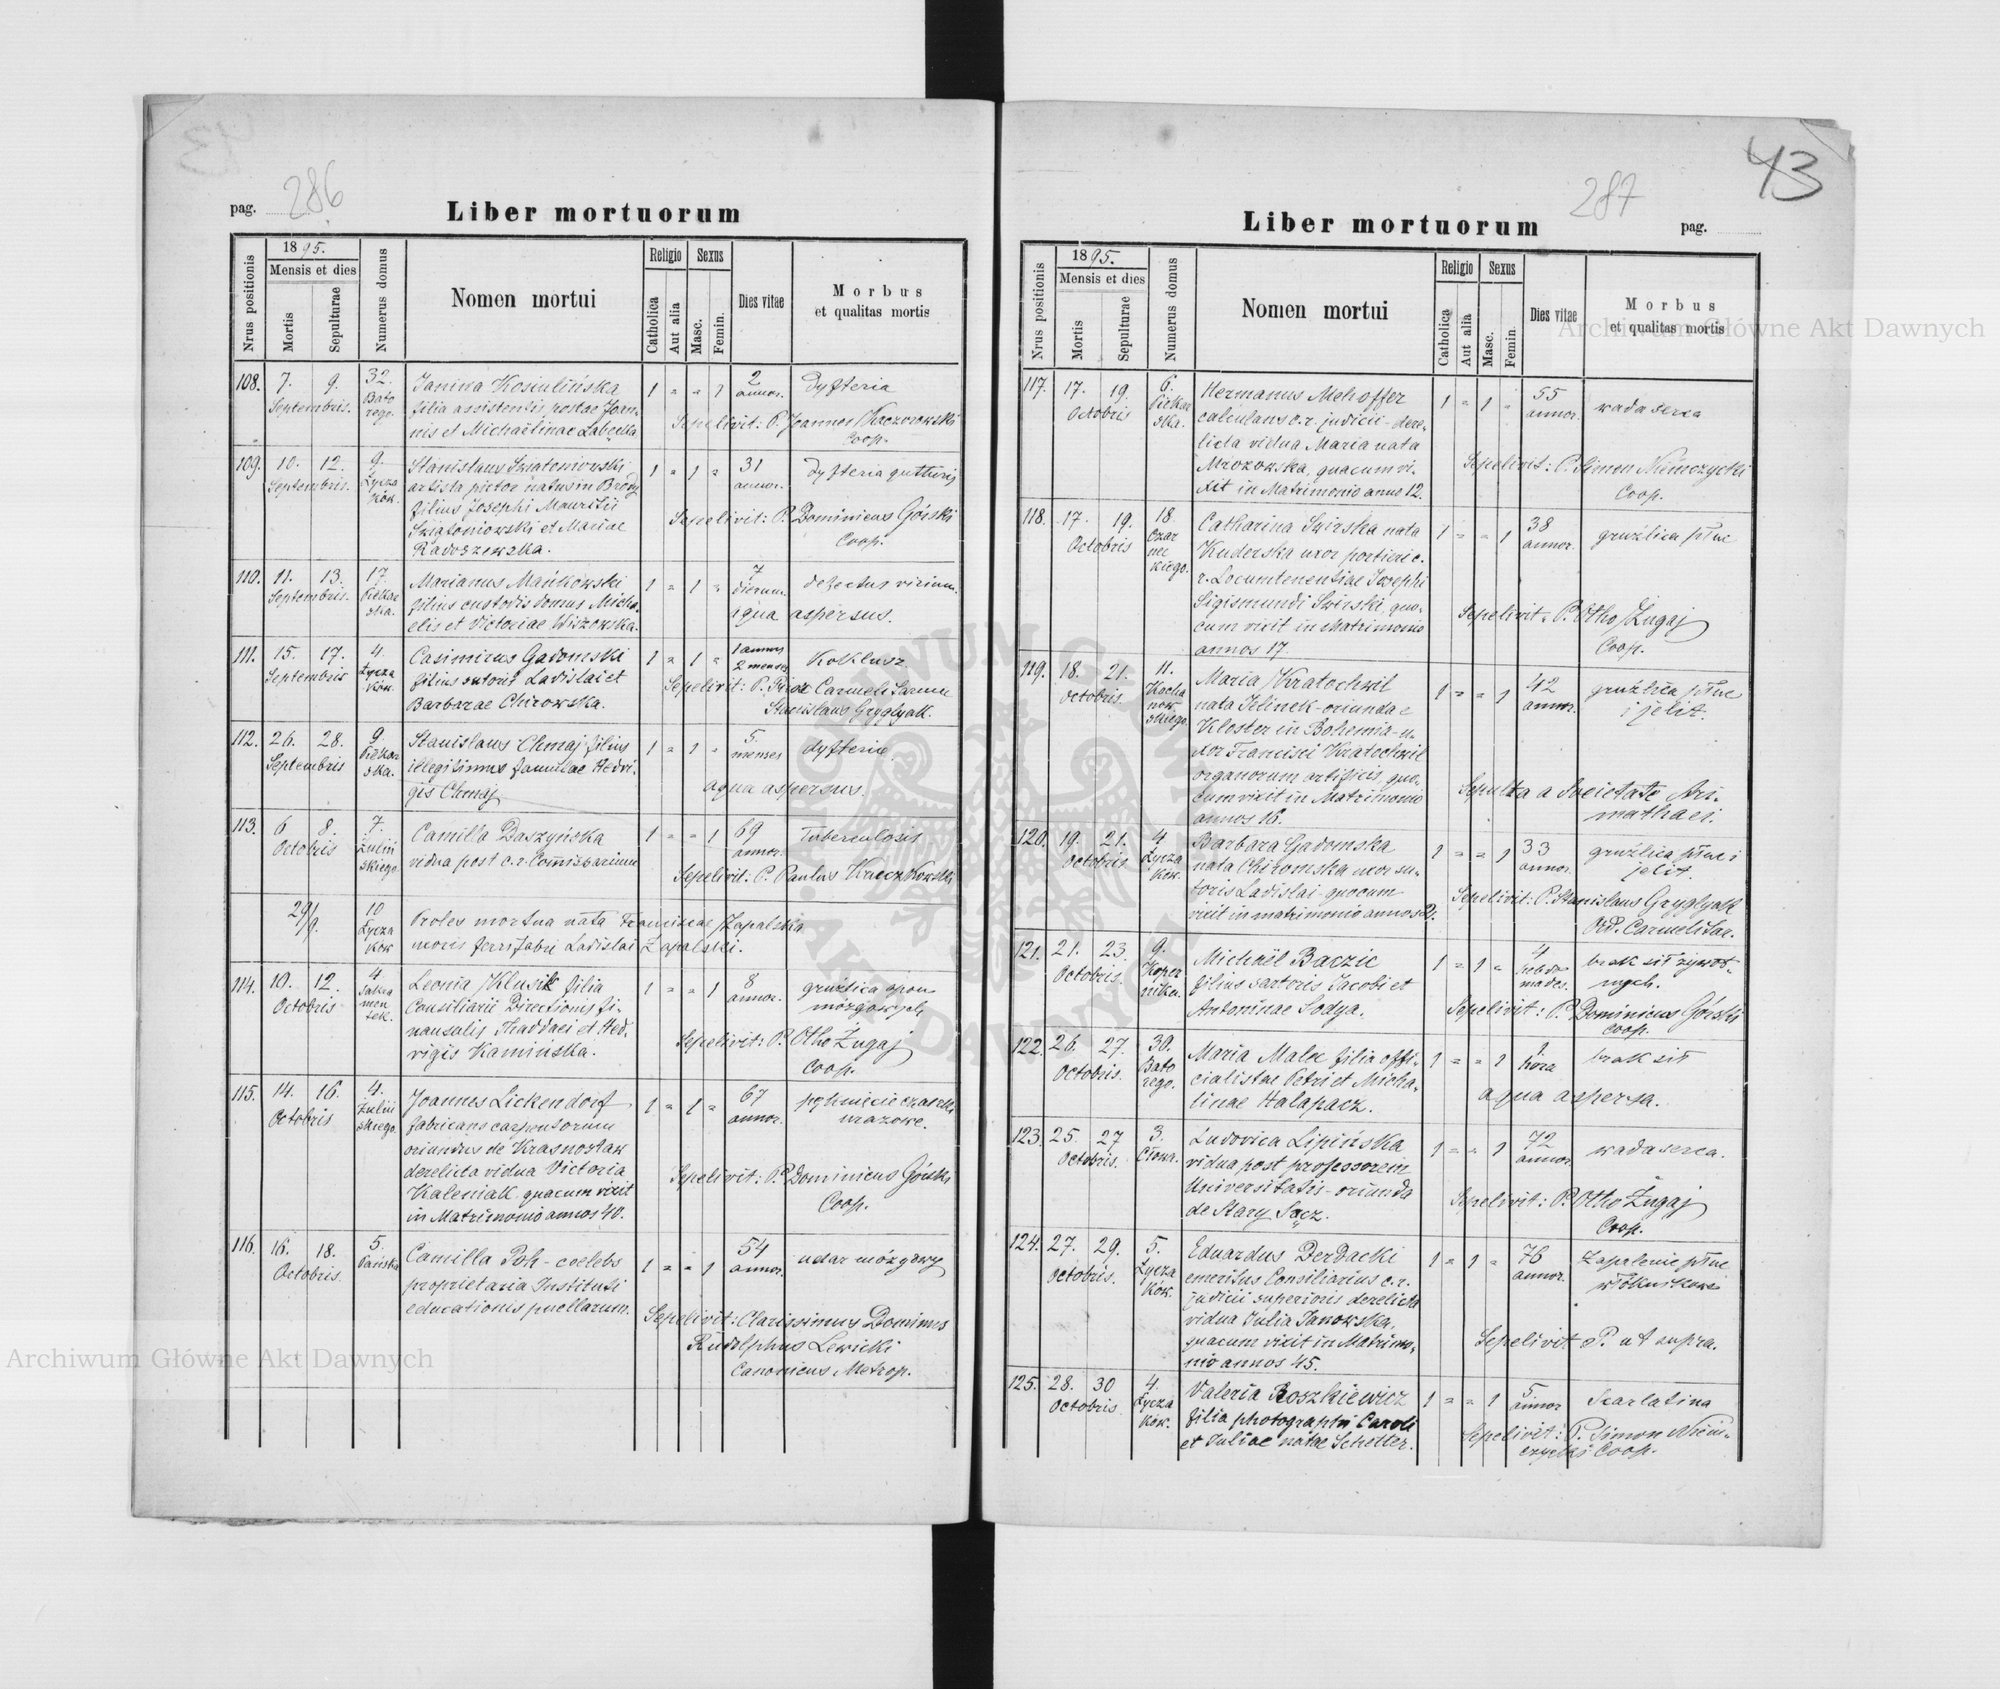 43
pag. 286
Liber mortuorum
Nrus positionis
1895.
Mensis et dies
Mortis
Sepulturae
Numerus domus
Nomen mortui
Religio
Catholica
Aut alia
Sexus
Masc.
Femin.
Dies vitae
Morbus
et qualitas mortis
108. 7. 9. Septembris. 32. Batorego. Janina Kosiulińska 1 " " 1 2 annor. Dyfteria
filia assistentis postae Joan-
nis et Michaëlinae Łabęcka
Sepelivit: P. Joannes Kaczorowski
Coop.
109. 10. 12. Septembris. 9. Łyczaków. Stanislaus Swiatoniowski 1 " 1 " 31 annor. Dyfteria gutturis
artista pictor natus in Brody
filius Josephi Mauritii
Swiątoniowski et Mariae
Radoszewska.
Sepelivit: P. Dominicus Górski
Coop.
110. 11. 13. Septembris. 17. Piekarska. Marianus Mańkowski 1 " 1 " 7 dierum. defectus virium.
filius custodis domus Micha-
elis et Victoriae Wiszowska.
aqua aspersus.
111. 15. 17. Septembris 4. Łyczaków. Casimirus Gadomski 1 " 1 " 1 annus 2 menses Koklusz
filius sutoris Ladislai et
Barbarae Chirowska.
Sepelivit: P. Prior Carmeli Sarmu
Stanislaus Gryglyak.
112. 26. 28. Septembris 9. Piekarska. Stanislaus Chmaj filius 1 " 1 " 5. menses dyfteria
illegitimus famulae Hedvi-
gis Chmaj
aqua aspersus.
113. 6 8. Octobris 7. Zulińskiego. Camilla Daszyńska 1 " " 1 69 annor. Tuberculosis
vidua post c.r. Comissarium
Sepelivit: P. Paulus Kraczkowski
29/9. 10 Łyczakow Proles mortua nata Franciscae Zapalska
uxoris ferrifabri Ladislai Zapalski.
114. 10. 12. Octobris 4 Sakramentek. Leonia Klusik filia 1 " " 1 8 annor. gruźlica opon
Consiliarii Directionis fi- mózgowych
nansalis Thaddaei et Hed-
vigis Kamińska.
Sepelivit: P. Otho Żugaj
Coop.
115. 14. 16. Octobris 4. Zulińskiego. Joannes Lickendorf 1 " 1 " 67 annor. pęknięcie czaszki
fabricans carpentorum urazowe.
oriundus de Krasnostaw
derelicta vidua Victoria
Kaleniak quacum vixit
in Matrimonio annos 40.
Sepelivit: P. Dominicus Górski
Coop.
116. 16. 18. Octobris. 5. Pańska Camilla Poh - coelebs 1 " " 1 54 annor. udar mózgowy
proprietaria Instituti
educationis puellarum.
Sepelivit: Clarissimus Dominus
Rudolphus Lewicki
Canonicus Metrop.
43
287
Liber mortuorum
pag.
Nrus positionis
1895.
Mensis et dies
Mortis
Sepulturae
Numerus domus
Nomen mortui
Religio
Catholica
Aut alia
Sexus
Masc.
Femin.
Dies vitae
Morbus
et qualitas mortis
117. 17. 19. Octobris 6. Piekarska. Hermanus Mehoffer 1 " 1 " 55 annor. wada serca
calculans c.r. judicii - dere-
licta vidua Maria nata
Mrozowska, quacum vi-
xit in Matrimonio annos 12.
Sepelivit: P. Simon Niemczycki
Coop.
118. 17. 19. Octobris 18. Czarneckiego. Catharina Swirska nata 1 " " 1 38 annor. gruźlica płuc
Kuderska uxor portieri c.
r. Locumtenentiae Josephi
Sigismundi Swirski, quo-
cum vixit in Matrimonio
annos 17.
Sepelivit. P. Otho Żugaj
Coop.
119. 18. 21. octobris. 11. Kochanowskiego. Maria Kratochwil 1 " " 1 42 annor. gruźlica płuc
nata Jelinek - oriunda e i jelit.
Kloster in Bohemia - u-
xor Francisci Kratochwil
organorum artificis, quo-
cum vixit in Matrimonio
annos 16.
Sepulta a Societate Ari-
mathaei.
120. 19. 21. octobris 4 Łyczaków. Barbara Gadomska 1 " " 1 33 annor. gruźlica płuc i
nata Chiromska uxor su- jelit.
toris Ladislai quocum
vixit in matrimonio annos 2.
Sepelivit: P. Stanislaus Gryglyak
Ord. Carmelitar.
121. 21. 23. Octobris. 9. Kopernika. Michaël Baczic 1 " 1 " 4 hebdomades. brak sił żywot-
filius sartoris Jacobi et nych.
Antoninae Sodya.
Sepelivit: P. Dominicus Górski
Coop.
122. 26. 27. Octobris. 30. Batorego. Maria Malec filia offi- 1 " " 1 1 hora brak sił
cialistae Petri et Micha-
linae Halapacz.
aqua aspersa.
123. 25. 27 Octobris. 3. Cłowa. Ludovica Lipińska 1 " " 1 72 annor. wada serca.
vidua post professorem
Universitatis - oriunda
de Stary Sącz.
Sepelivit: P. Otho Żugaj
Coop.
124. 27. 29. Octobris. 5. Łyczaków. Eduardus Derdacki 1 " 1 " 76 annor. Zapalenie płuc
emeritus Consiliarius c.r. włóknikowe
judicii superioris derelicta
vidua Julia Janowska,
quacum vixit in Matrimo-
nio annos 45.
Sepelivit P. ut supra.
125. 28. 30 Octobris 4. Łyczaków. Valeria Roszkiewicz 1 " " 1 5. annor Scarlatina
filia photographi Caroli
et Juliae natae Schotter.
Sepelivit: P. Simon Niem-
czycki Coop.
Archiwum Główne Akt Dawnych
Archiwum Główne Akt Dawnych